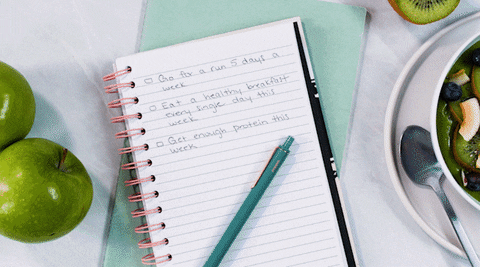 Go for a run 5 days a
week
Eat a healthy breakfast
every single day this
week
Get enough protein this
week